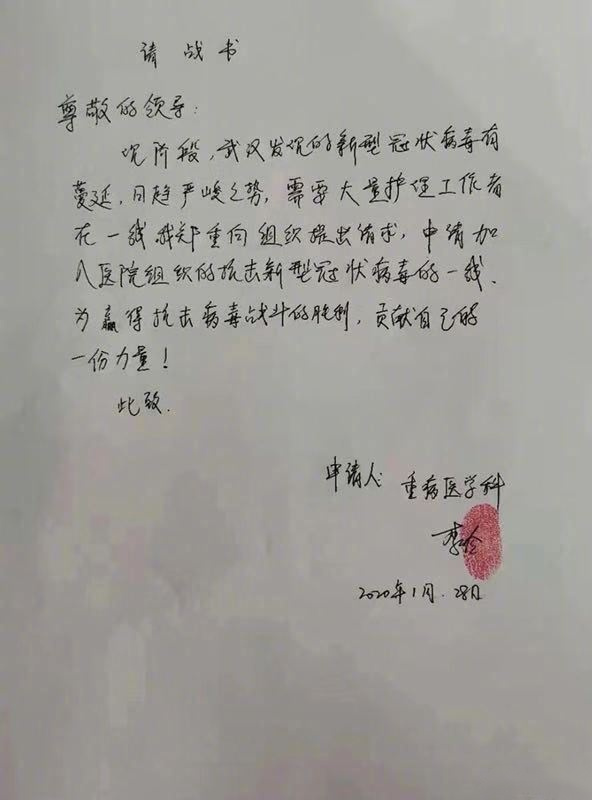 请战书
尊敬的领导:
现阶段,武汉发现的新型冠状病毒有
蔓延,日趋严峻之势,需要大量护理工作者
在一线,我郑重向组织提出请求,申请加
入医院组织的抗击新型冠状病毒的一线、
为赢得抗击病毒战斗的胜利,贡献自己的
一份力量!
此致.
申请人: 重病医学科
李
2020年1月.28日